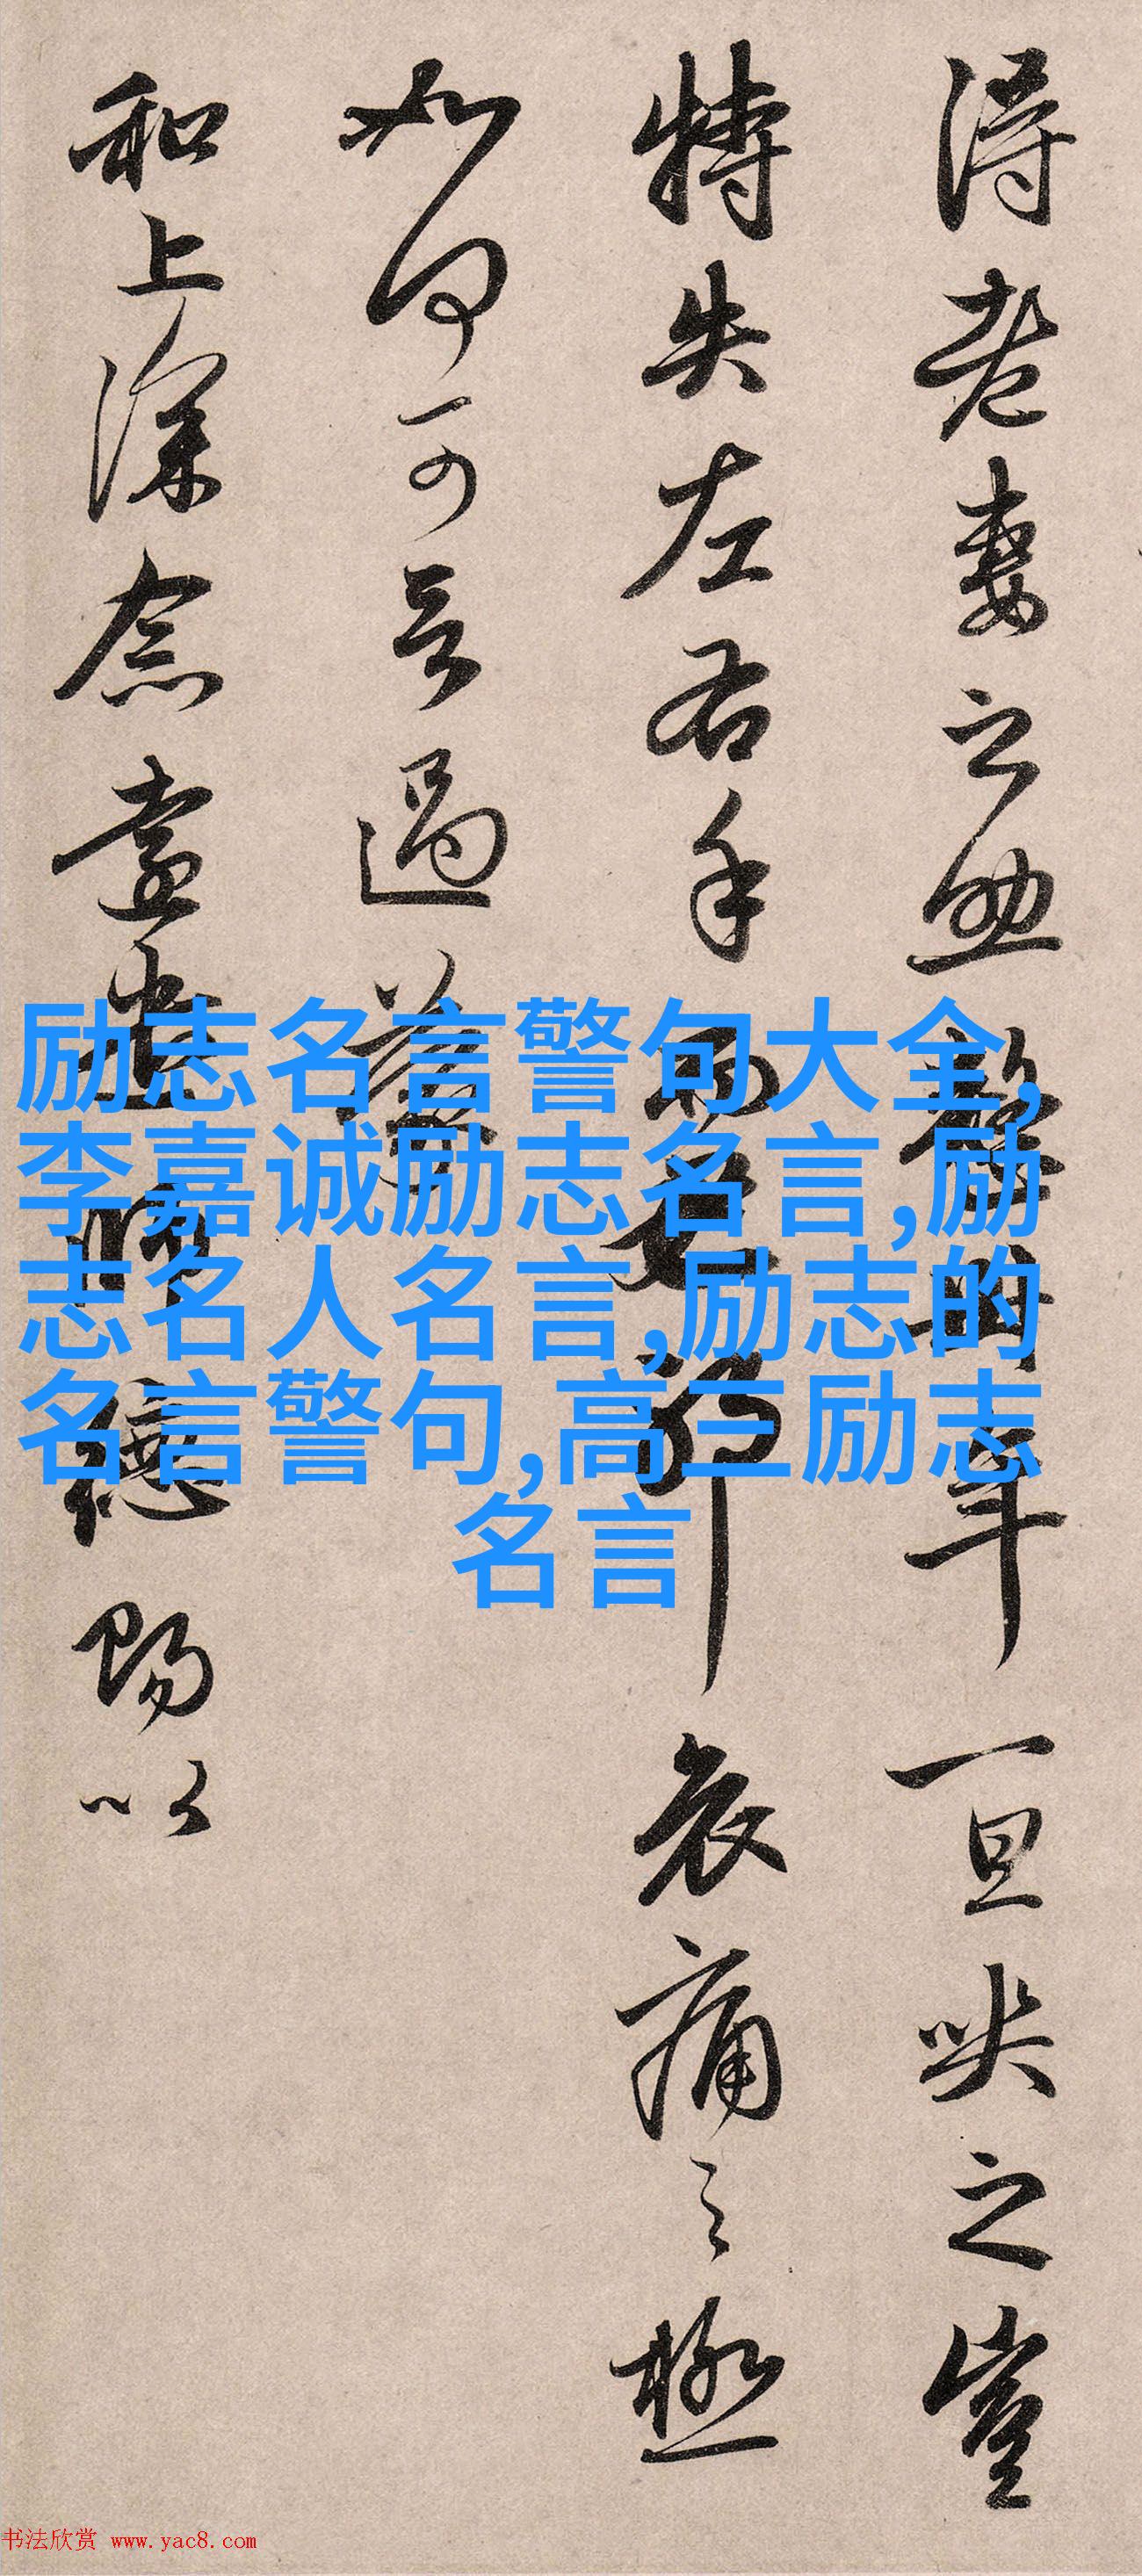 得老妻之助整卅年一旦哭之豈
特失左右手而已耶哀痛之極
如何可言過蒙
和上深念遣賜以
励志名言警句大全,
李嘉诚励志名言,励
志名人名言,励志的
名言警句,高三励志
名言
书法欣赏 www.yac8.com